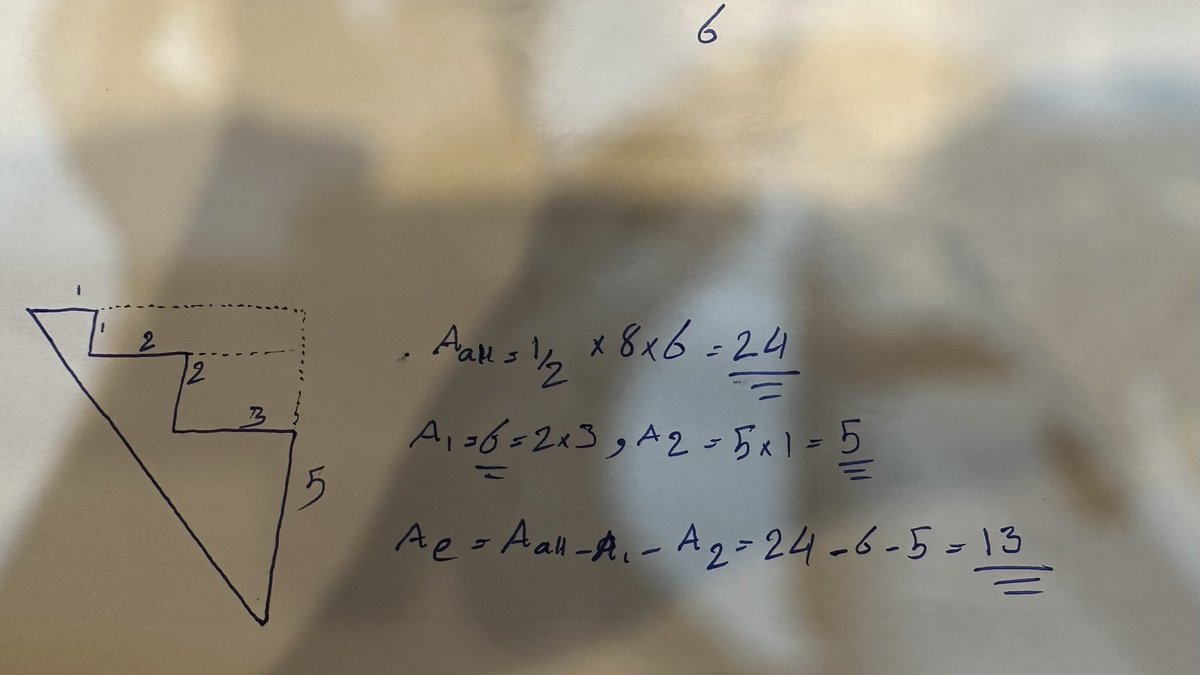 6
1
1
2
2
3
5
A all = 1/2 × 8 × 6 = 24
A1 = 6 = 2×3 , A2 = 5×1 = 5
Ae = A all - A1 - A2 = 24 - 6 - 5 = 13